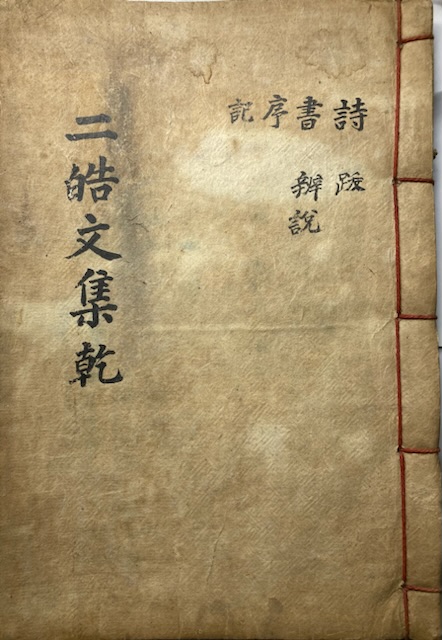 詩 書 序 記
跋 辨說
二皓文集乾